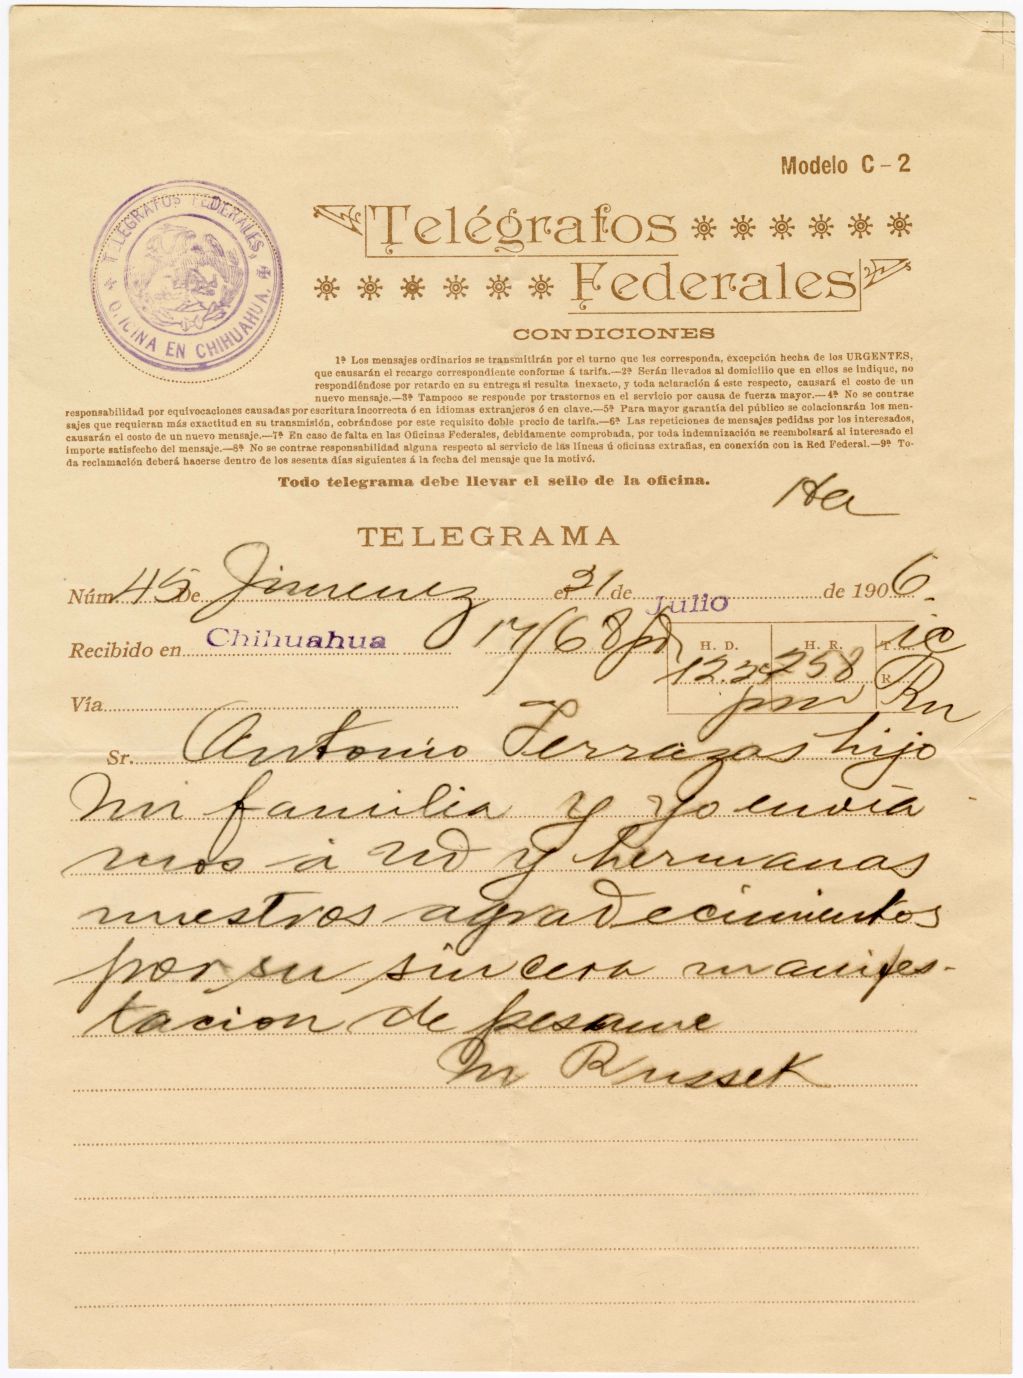 Modelo C-2
TELEGRAFOS FEDERALES,
OFICINA EN CHIHUAHUA.
Telégrafos
Federales
CONDICIONES
1ª Los mensajes ordinarios se transmitirán por el turno que les corresponda, excepción hecha de los URGENTES,
que causarán el recargo correspondiente conforme á tarifa.—2ª Serán llevados al domicilio que en ellos se indique, no
respondiéndose por retardo en su entrega si resulta inexacto, y toda aclaración á este respecto, causará el costo de un
nuevo mensaje.—3ª Tampoco se responde por trastornos en el servicio por causa de fuerza mayor.—4ª No se contrae
responsabilidad por equivocaciones causadas por escritura incorrecta ó en idiomas extranjeros ó en clave.—5ª Para mayor garantía del público se colacionarán los men-
sajes que requieran más exactitud en su transmisión, cobrándose por este requisito doble precio de tarifa.—6ª Las repeticiones de mensajes pedidas por los interesados,
causarán el costo de un nuevo mensaje.—7ª En caso de falta en las Oficinas Federales, debidamente comprobada, por toda indemnización se reembolsará al interesado el
importe satisfecho del mensaje.—8ª No se contrae responsabilidad alguna respecto al servicio de las líneas ú oficinas extrañas, en conexión con la Red Federal.—9ª To-
da reclamación deberá hacerse dentro de los sesenta días siguientes á la fecha del mensaje que la motivó.
Todo telegrama debe llevar el sello de la oficina.
TELEGRAMA
Núm. 45 De Jimenez el 31 de Julio de 1906.
Recibido en Chihuahua 17/68
H. D. H. R. T.
258 R.
pm Rn
Vía
Sr. Antonio Terrazas hijo
Mi familia y yo envia
mos á ud y hermanas
nuestros agradecimientos
por su sincera manifes-
tacion de pesame
M Russek